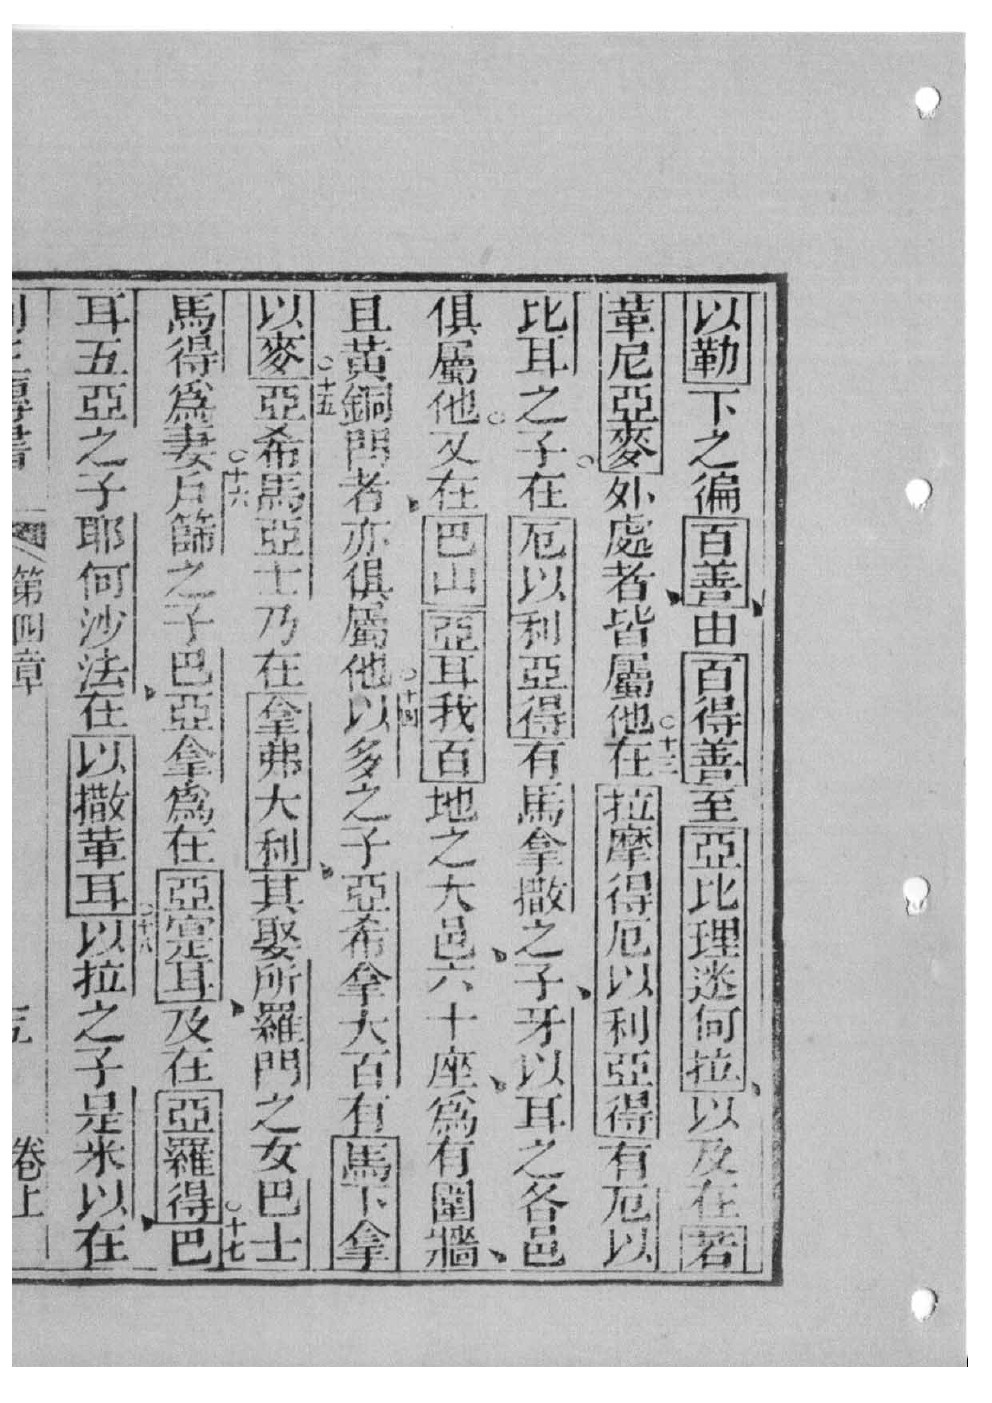 以勒下之徧百善由百得善至亞比理迷何拉以及在若
革尼亞麥外處者皆屬他○十三在拉摩得厄以利亞得有厄以
比耳之子在厄以利亞得有馬拿撒之子牙以耳之各邑
俱屬他○又在巴山亞耳我百地之大邑六十座爲有圍牆
且黃銅門者亦俱屬他○十四以多之子亞希拿大百有馬下拿
以麥○十五亞希馬亞士乃在拿弗大利其娶所羅門之女巴士
馬得爲妻○十六戶篩之子巴亞拿爲在亞寔耳及在亞羅得○十七巴
耳五亞之子耶何沙法在以撒革耳○十八以拉之子是米以在
第四章 卷上